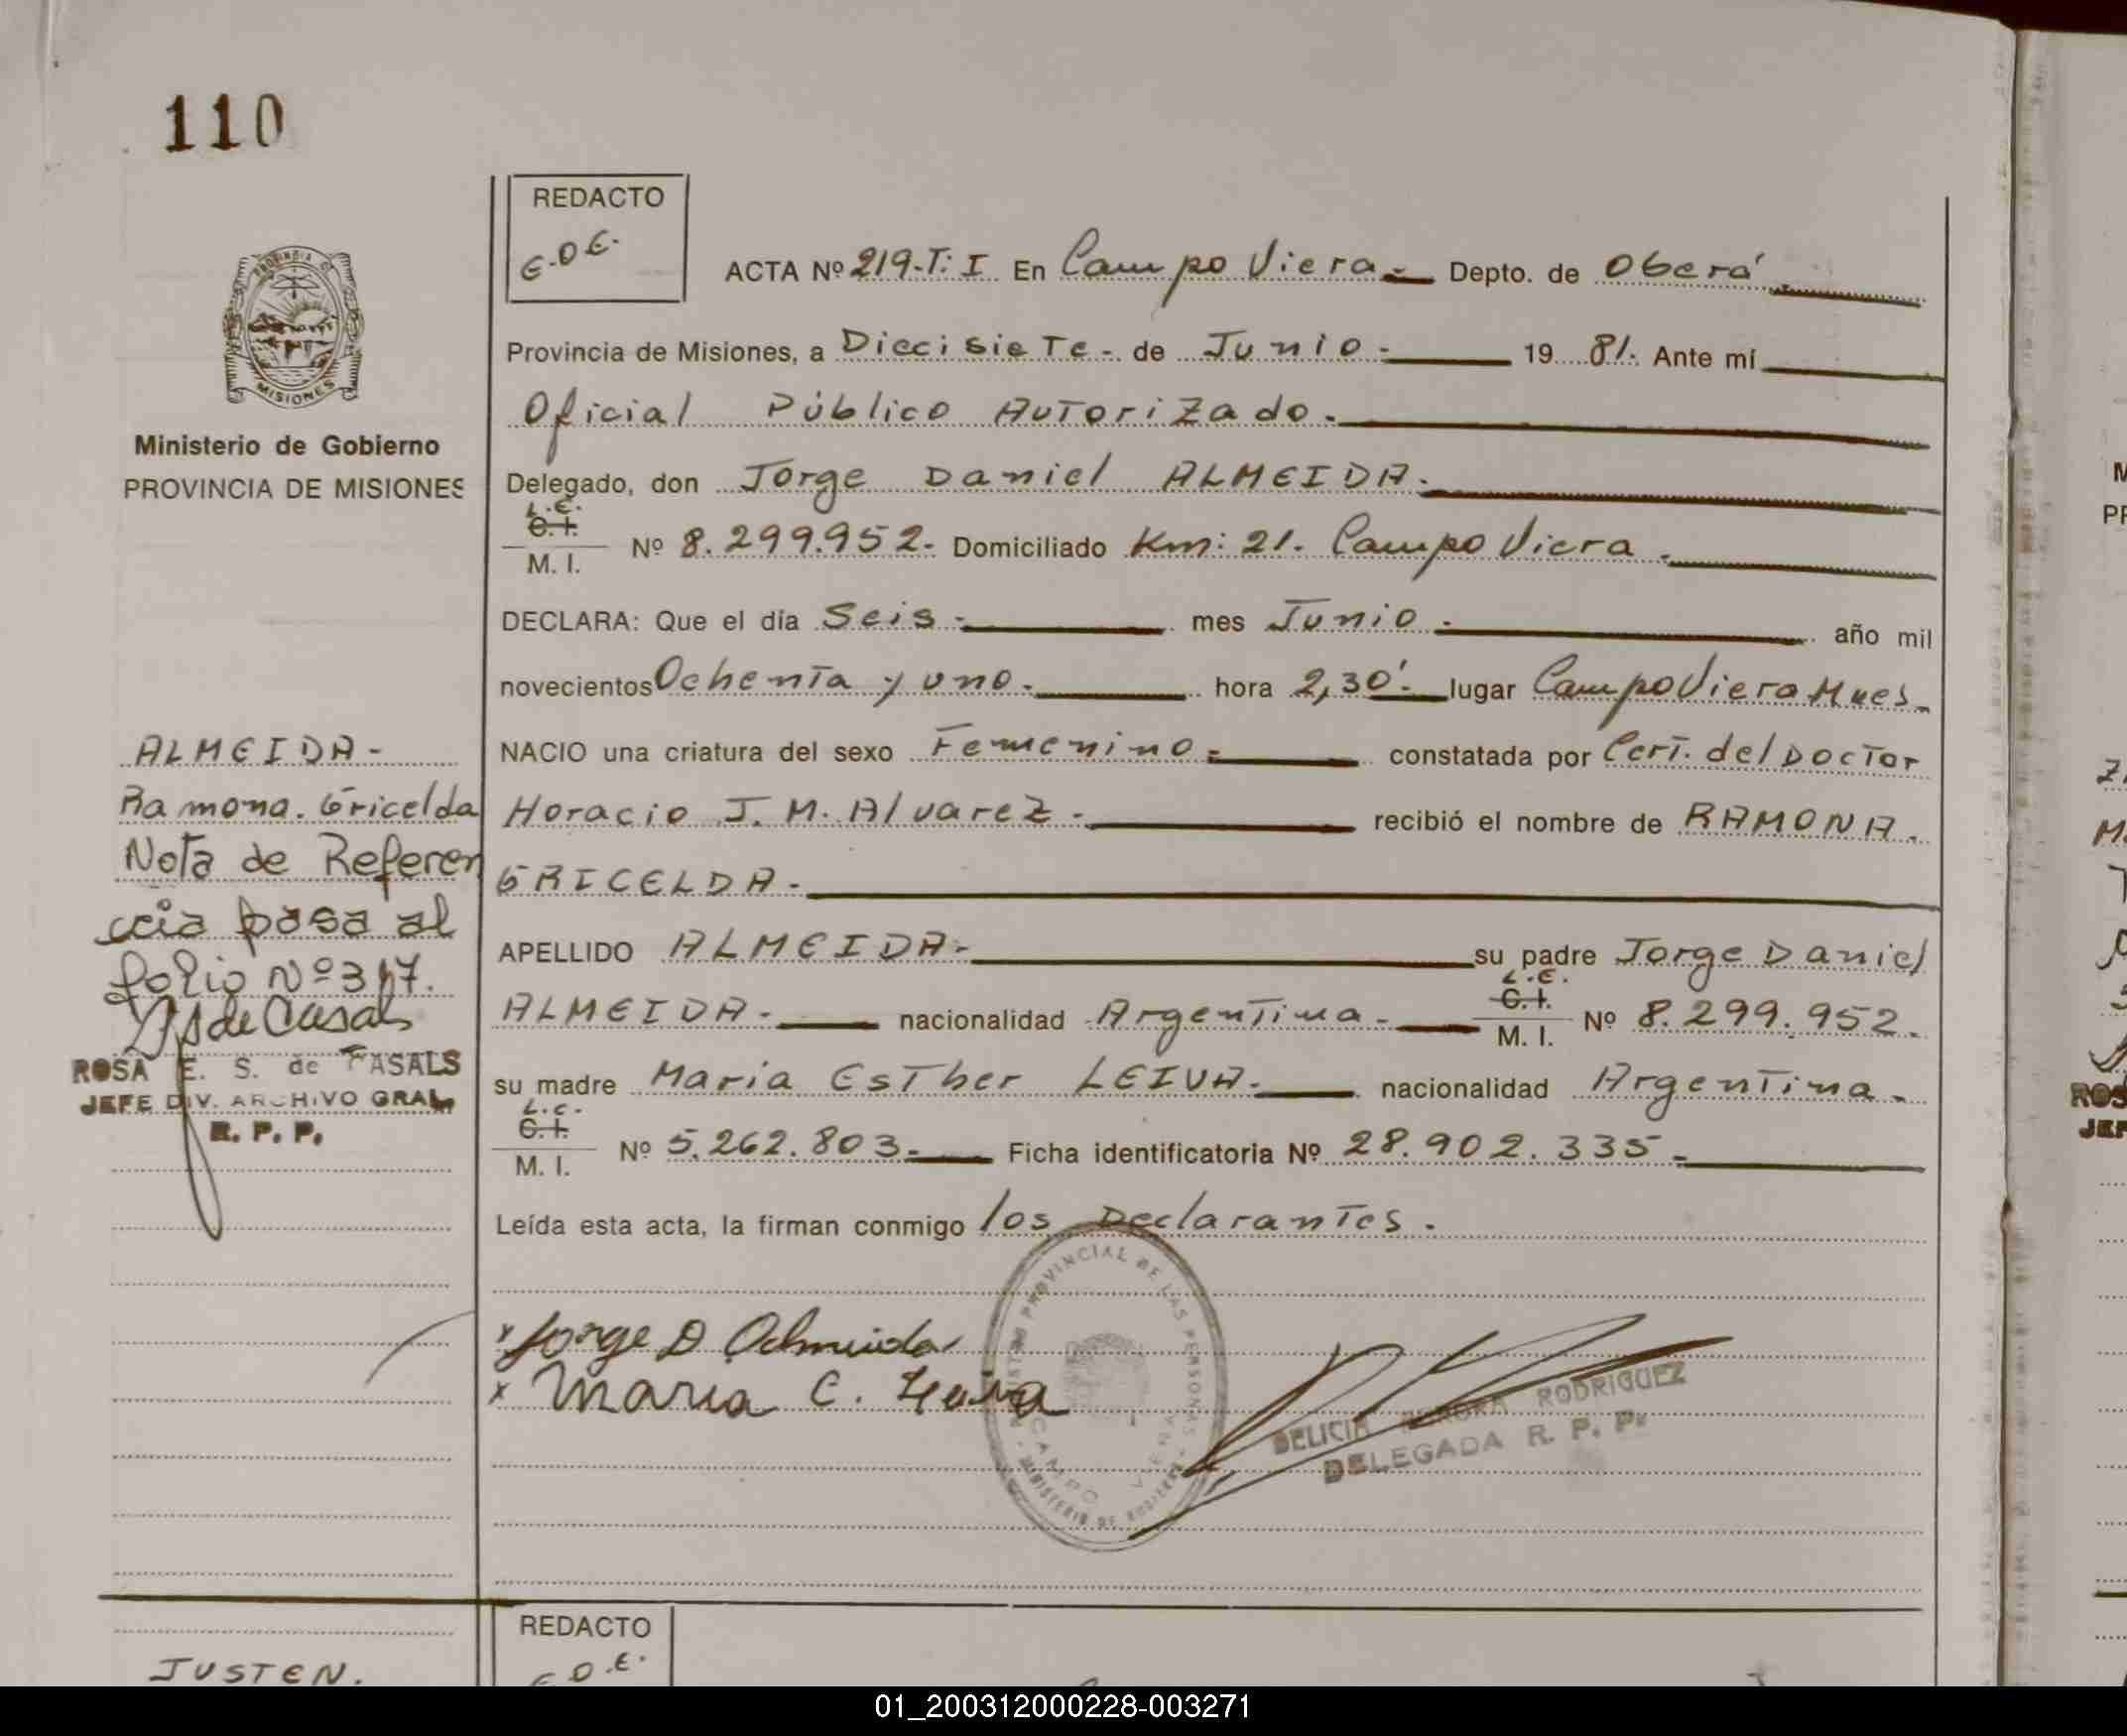 110
REDACTO
E.D.E.
ACTA Nº 219-T: I En Campo Viera.- Depto. de Oberá
Provincia de Misiones, a Diecisiete.- de Junio.- 19 81. Ante mí
Oficial Público Autorizado.-
Ministerio de Gobierno
PROVINCIA DE MISIONES
Delegado, don Jorge Daniel ALMEIDA.-
L.E.
C.I.
M. I. Nº 8.299.952.- Domiciliado Km: 21. Campo Viera.-
DECLARA: Que el día Seis.- mes Junio.- año mil
novecientos Ochenta y uno.- hora 2,30'.- lugar Campo Viera Mnes.-
NACIO una criatura del sexo Femenino.- constatada por Cert. del Doctor
Horacio J. M. Alvarez.- recibió el nombre de RAMONA.
GRICELDA.-
APELLIDO ALMEIDA.- su padre Jorge Daniel
ALMEIDA.- nacionalidad Argentina.- L.E.
C.I.
M. I. Nº 8.299.952.-
su madre Maria Esther LEIVA.- nacionalidad Argentina.-
L.C.
C.I.
M. I. Nº 5.262.803.- Ficha identificatoria Nº 28.902.335.-
Leída esta acta, la firman conmigo los Declarantes.
ALMEIDA-
Ramona. Gricelda
Nota de Referen
cia pasa al
folio Nº 317.
S de Casals
ROSA E. S. de CASALS
JEFE DIV. ARCHIVO GRAL.
R. P. P.
Jorge D Almeida
Maria E. Leiva
REGISTRO PROVINCIAL DE LAS PERSONAS
CAMPO VIERA
MINISTERIO DE GOBIERNO
DELICIA RODRIGUEZ
DELEGADA R. P. P.
REDACTO
E.D.E.
JUSTEN.
ROS
JEF
01_200312000228-003271